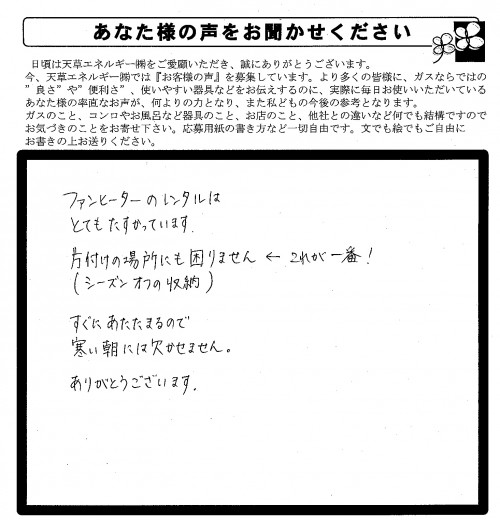 あなた様の声をお聞かせください
日頃は天草エネルギー㈱をご愛顧いただき、誠にありがとうございます。
今、天草エネルギー㈱では『お客様の声』を募集しています。より多くの皆様に、ガスならではの
”良さ”や”便利さ”、使いやすい器具などをお伝えするのに、実際に毎日お使いいただいている
あなた様の率直なお声が、何よりの力となり、また私どもの今後の参考となります。
ガスのこと、コンロやお風呂など器具のこと、お店のこと、他社との違いなど何でも結構ですので
お気づきのことをお寄せ下さい。応募用紙の書き方など一切自由です。文でも絵でもご自由に
お書きの上お送りください。
ファンヒーターのレンタルは
とてもたすかっています.
片付けの場所にも困りません ← これが一番！
(シーズンオフの収納)
すぐにあたたまるので
寒い朝には欠かせません。
ありがとうございます.